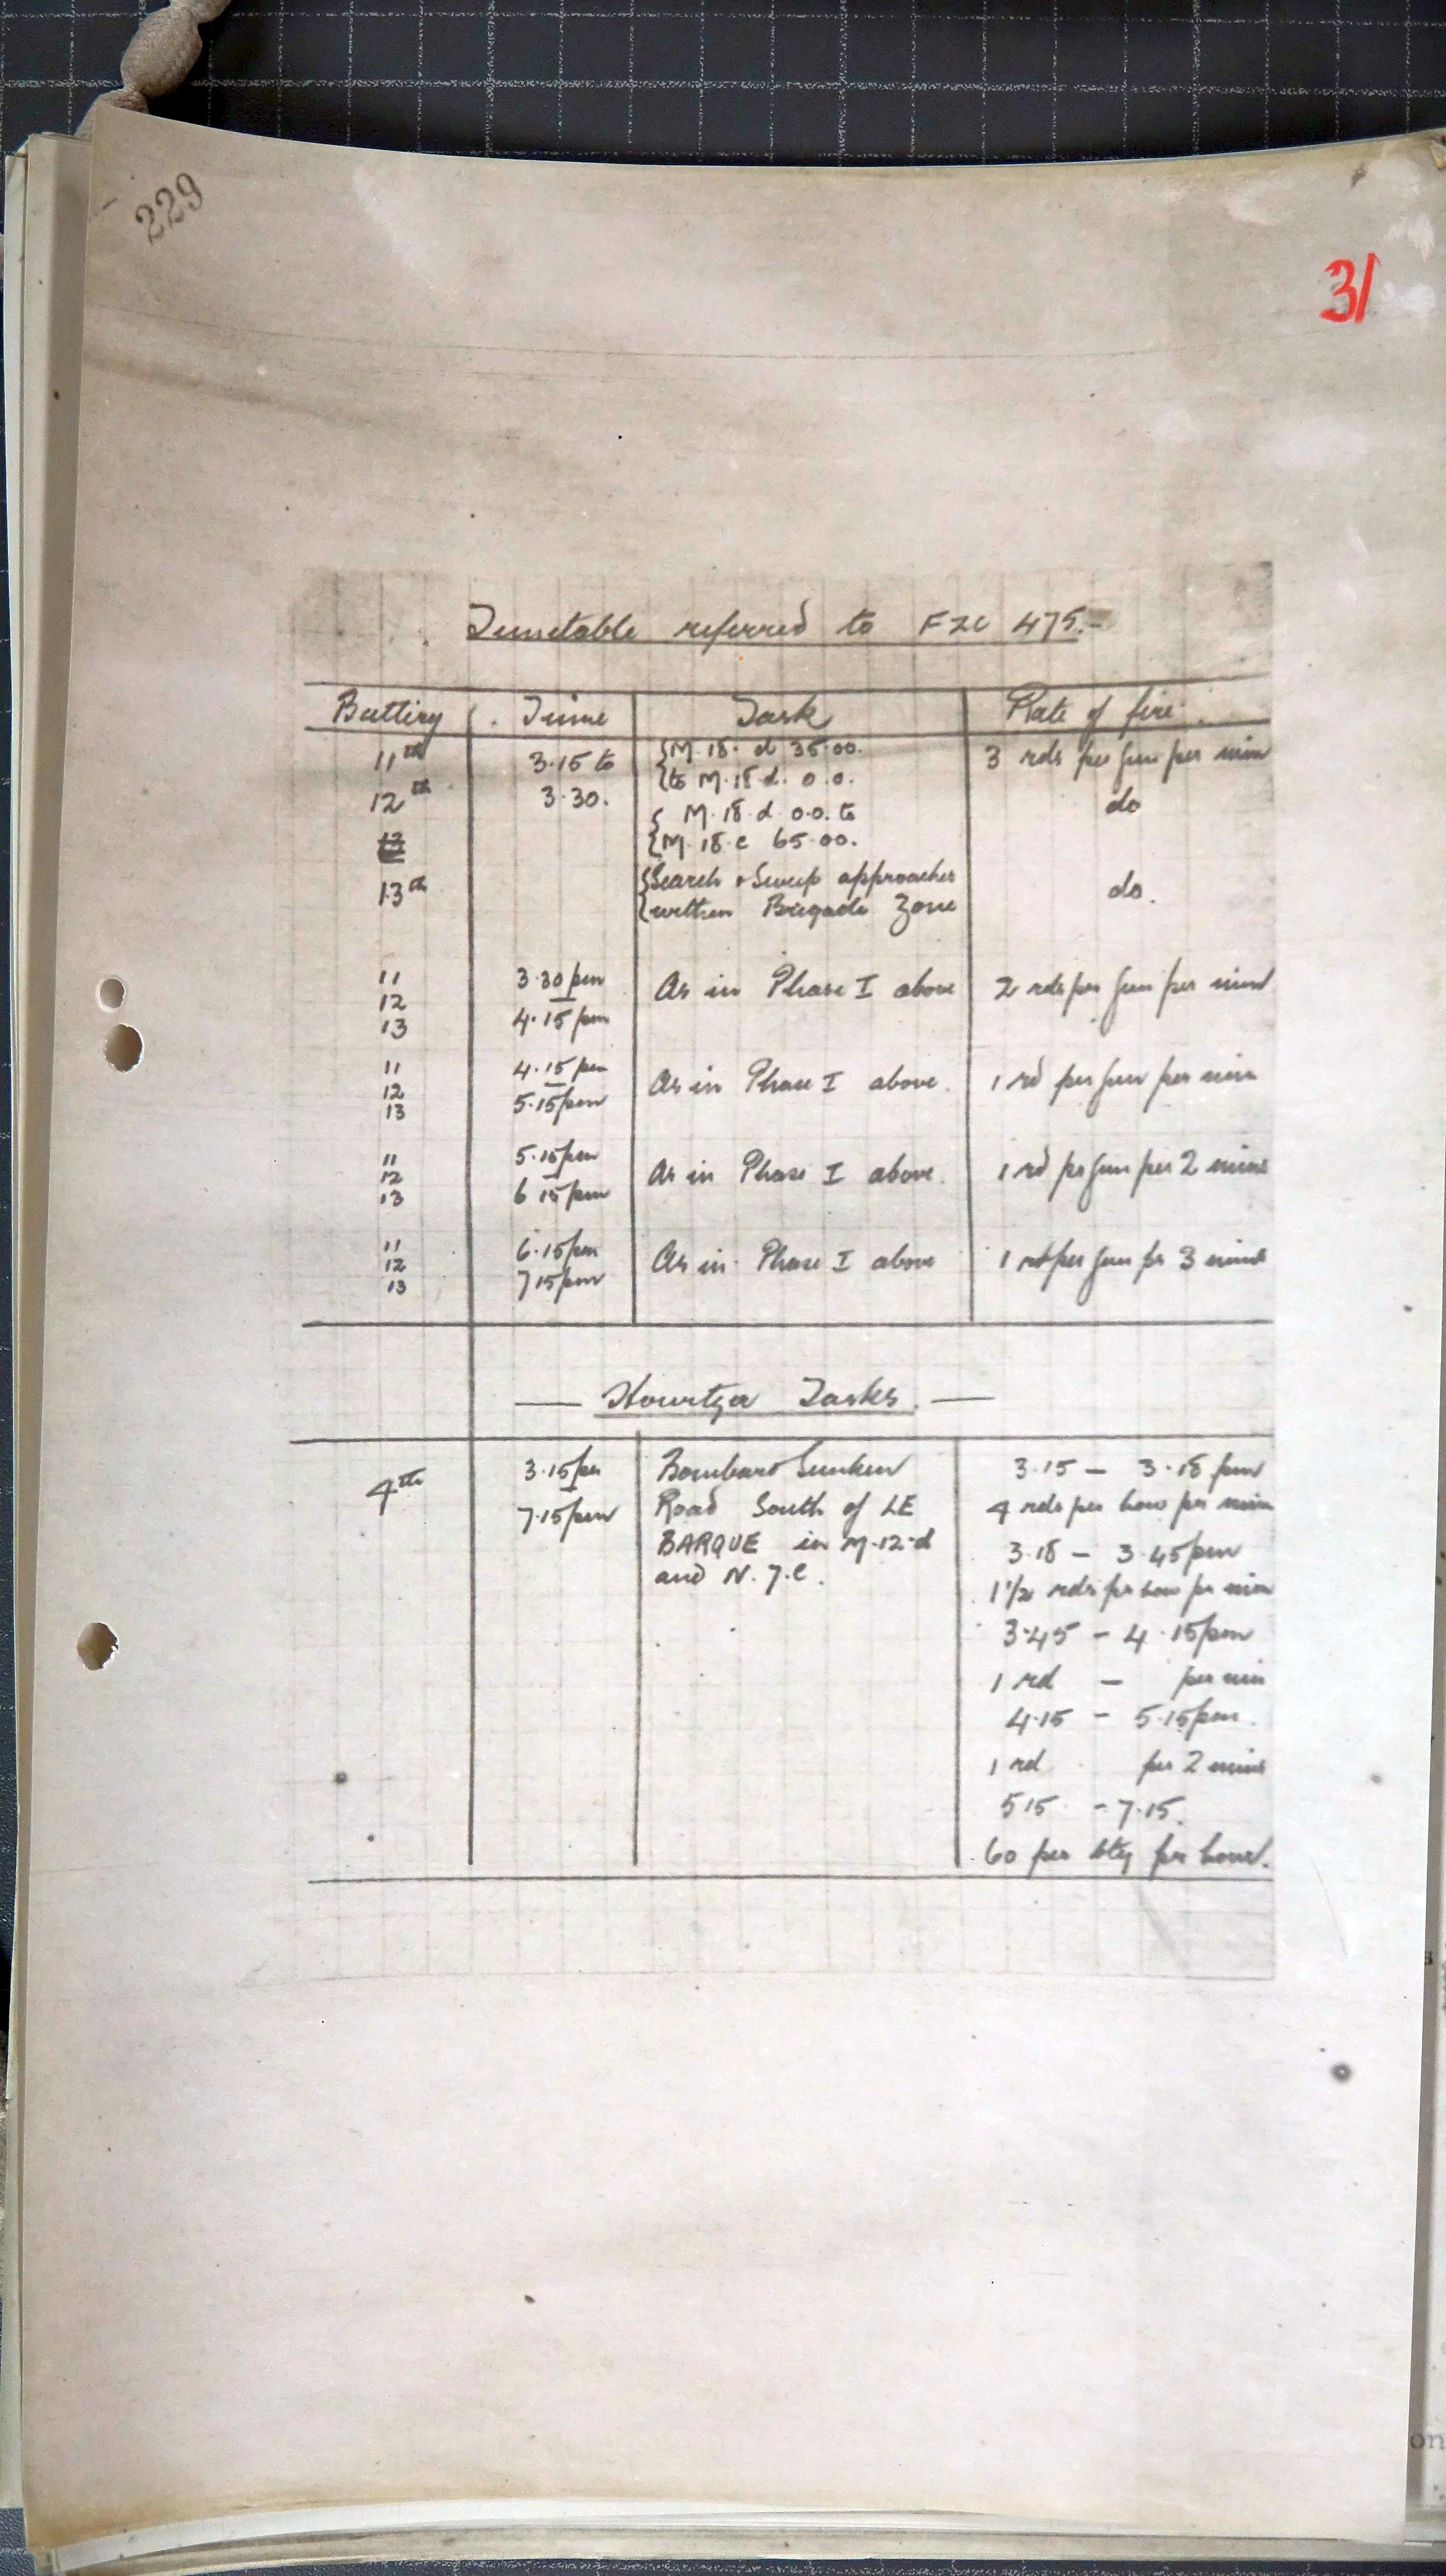 229
31
Timetable referred to FZC 475.-
Battery Time Task Rate of fire
11th 3.15 to {M.18. d 35.00. 3 rds per gun per min
{to M.18.d. 0.0.
12th 3.30. { M.18.d 0.0. to do
{M.18.c 65.00.
13th {Search & Sweep approaches do.
{within Brigade Zone
11 3.30pm As in Phase I above 2 rds per gun per min
12
13 4.15pm
11 4.15pm As in Phase I above. 1 rd per gun per min
12
13 5.15pm
11 5.15pm As in Phase I above. 1 rd per gun per 2 mins
12
13 6 15pm
11 6.15pm As in Phase I above 1 rd per gun per 3 mins
12
13 7 15pm
— Howitzer Tasks. —
4th 3.15pm Bombard Sunken 3.15 – 3.18 pm
7.15pm Road South of LE 4 rds per how per min
BARQUE in M.12.d 3.18 – 3.45pm
and N.7.c. 1 1/2 rds per how per min
3.45 – 4.15pm
1 rd – per min
4.15 – 5.15pm.
1 rd per 2 mins
5 15 – 7.15.
60 per bty per hour.
on